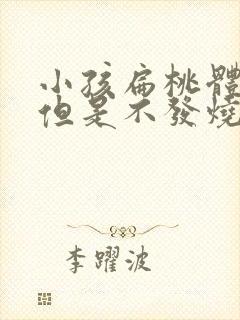 小孩扁桃體
但是不發燒
李躍波